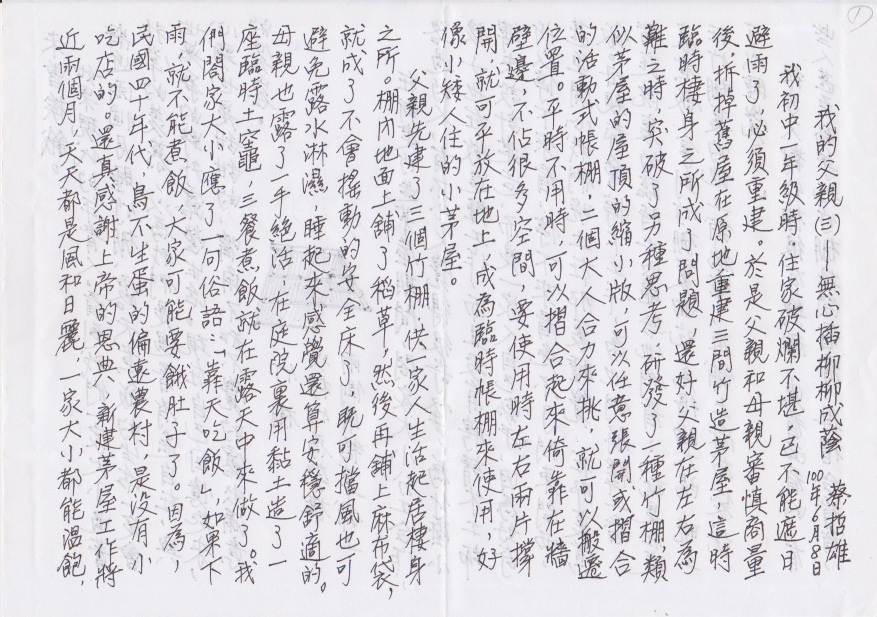 ①
我的父親(三)—無心插柳柳成蔭 蔡哲雄
100年6月8日
我初中一年級時,住家破爛不堪,已不能遮日
避雨了,必須重建。於是父親和母親審慎商量
後,拆掉舊屋在原地重建三間竹造茅屋,這時
臨時棲身之所成了問題,還好父親在左右為
難之時,突破了另種思考,研發了一種竹棚,類
似茅屋的屋頂的縮小版,可以任意張開或摺合
的活動式帳棚,二個大人合力來挑,就可以搬遷
位置。平時不用時,可以摺合起來倚靠在牆
壁邊,不佔很多空間,要使用時左右兩片撐
開,就可平放在地上,成為臨時帳棚來使用,好
像小矮人住的小茅屋。
父親先建了三個竹棚,供一家人生活起居棲身
之所。棚內地面上鋪了稻草,然後再鋪上麻布袋,
就成了不會搖動的安全床了,既可擋風也可
避免露水淋濕,睡起來感覺還算安穩舒適的。
母親也露了一手絕活,在庭院裏用黏土造了一
座臨時土窯竈,三餐煮飯就在露天中來做了。我
們閤家大小應了一句俗語:「靠天吃飯」,如果下
雨,就不能煮飯,大家可能要餓肚子了。因為,
民國四十年代,鳥不生蛋的偏遠農村,是沒有小
吃店的。還真感謝上帝的恩典,新建茅屋工作將
近兩個月,天天都是風和日麗,一家大小都能溫飽,